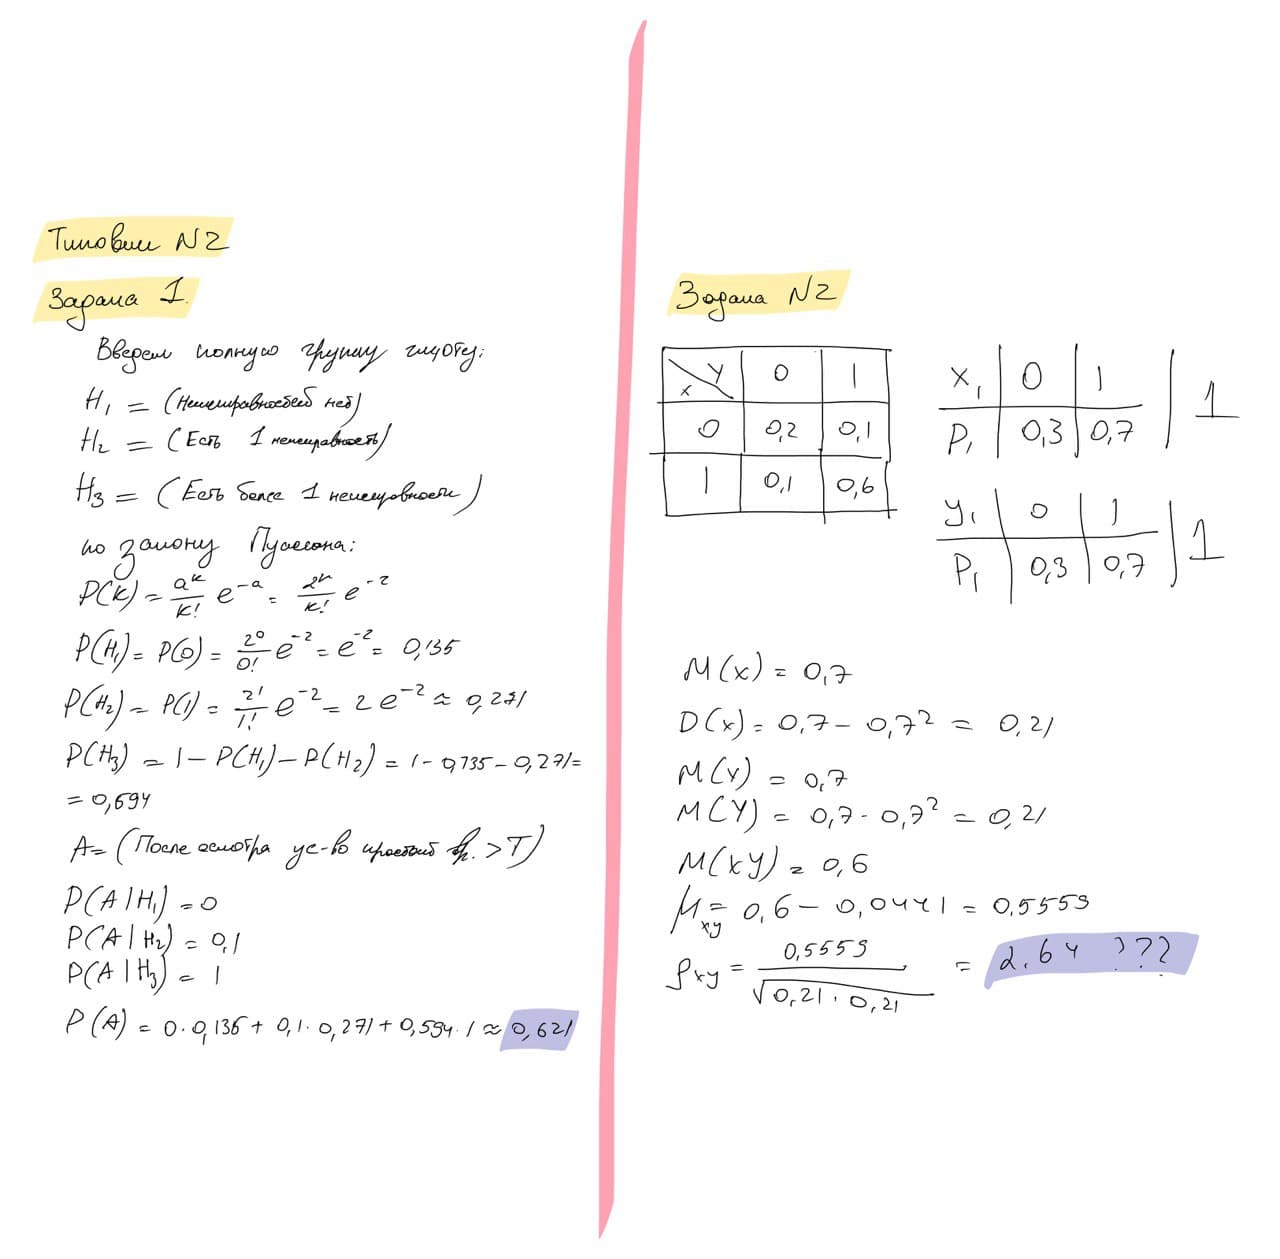 Типовик N2
Задача 1.
Введем полную группу гипотез:
H₁ = (Неисправностей нет)
H₂ = (Есть 1 неисправность)
H₃ = (Есть более 1 неисправности)
по закону Пуассона:
P(k) = a^k/k! e^-a = 2^k/k! e^-2
P(H₁) = P(0) = 2^0/0! e^-2 = e^-2 = 0,135
P(H₂) = P(1) = 2^1/1! e^-2 = 2e^-2 ≈ 0,271
P(H₃) = 1 - P(H₁) - P(H₂) = 1 - 0,135 - 0,271 =
= 0,594
A = (После осмотра ус-во простоит вр. > T)
P(A|H₁) = 0
P(A|H₂) = 0,1
P(A|H₃) = 1
P(A) = 0 · 0,135 + 0,1 · 0,271 + 0,594 · 1 ≈ 0,621
Задача N2
x Y 0 1
0 0,2 0,1
1 0,1 0,6
x₁ 0 1 | 1
P₁ 0,3 0,7
y₁ 0 1 | 1
P₁ 0,3 0,7
M(x) = 0,7
D(x) = 0,7 - 0,7² = 0,21
M(Y) = 0,7
M(Y) = 0,7 - 0,7² = 0,21
M(xy) = 0,6
μxy = 0,6 - 0,0441 = 0,5559
ρxy = 0,5559 / √0,21 · 0,21 = 2.64 ???